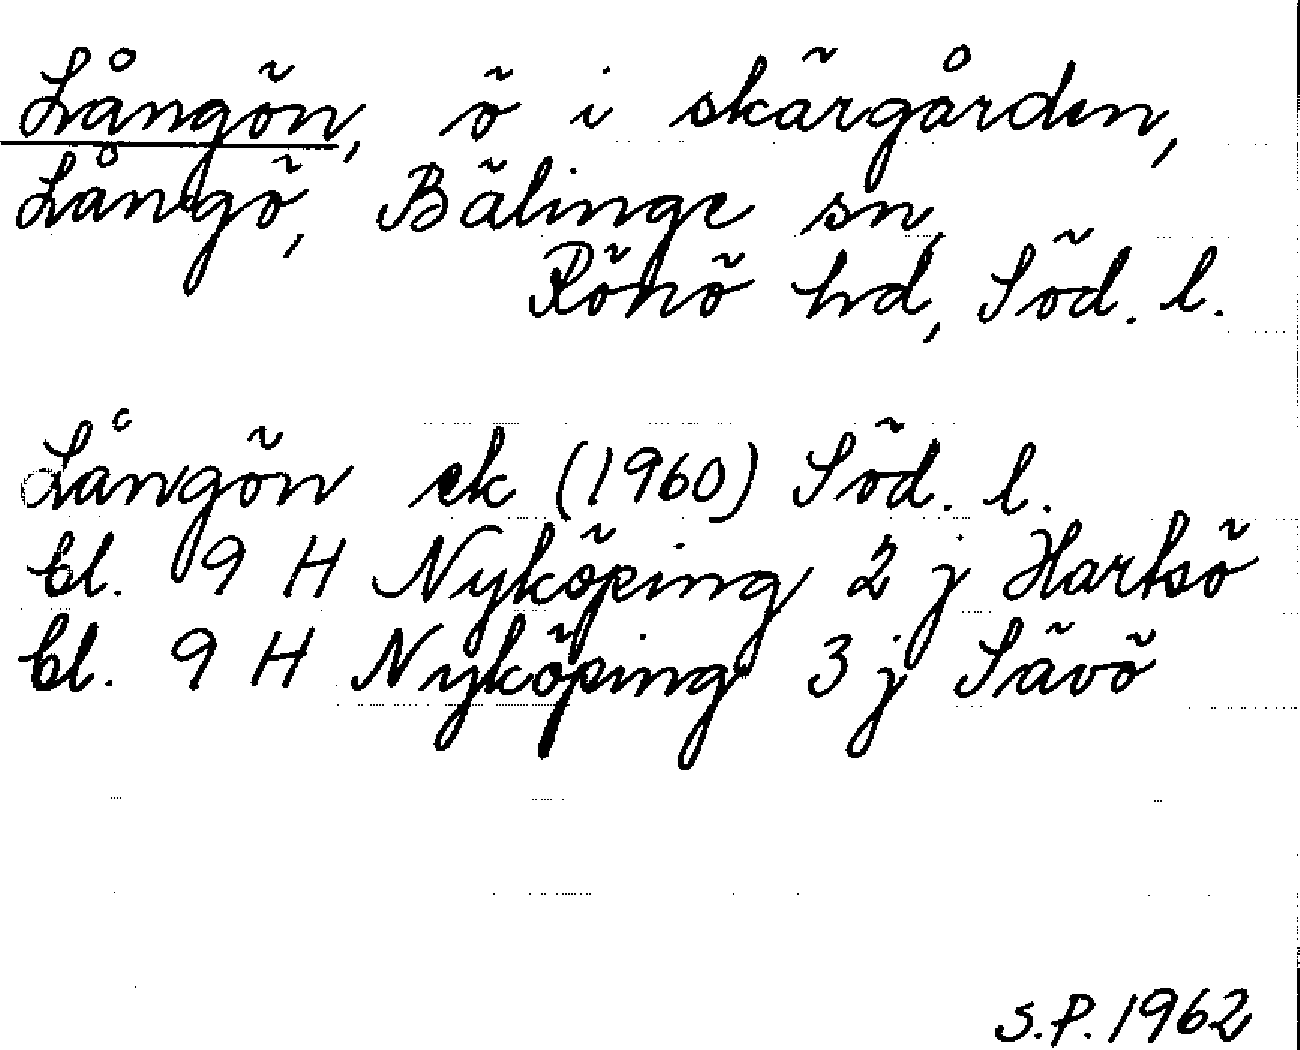 Långön, ö i skärgården,
Långö, Bälinge sn,
Rönö hd, Söd. l.
Långön ek (1960) Söd. l.
bl. 9 H Nyköping 2 j Hartsö
bl. 9 H Nyköping 3 j Sävö
S.P. 1962